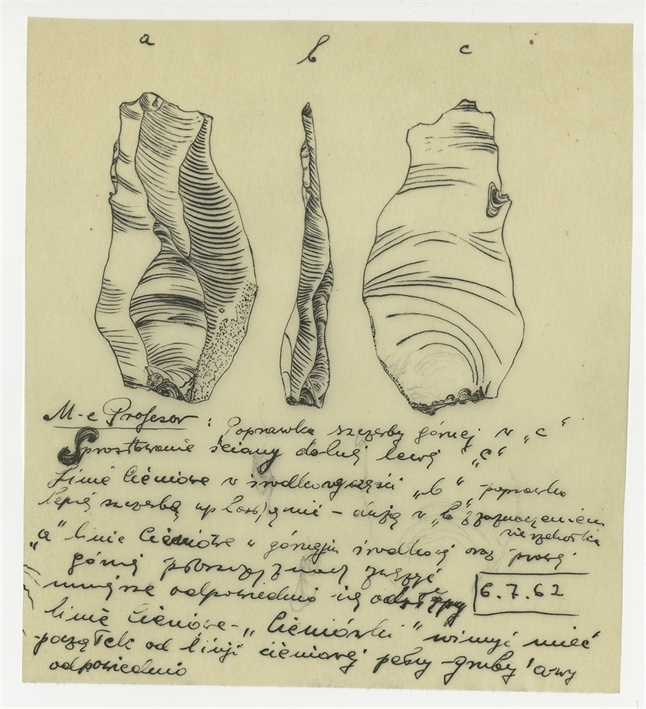 a b c
M-e Profesor : Poprawka szczerby górnej w „c“
Sprostowanie ściany dolnej lewej „c“
Linie cieniowe w środkowej części „b“ poprawka
lepiej szczerbę – dużą w „b“ z zaznaczeniem
„a“ linie cieniowe w górnym środkowej oraz prawej
górnej
mniejsze odpowiednio ich odstępy
6.7.62
linie cieniowe - „cieniówki“ winny mieć
początek od linji cieniowej pełny - gruby
odpowiednio